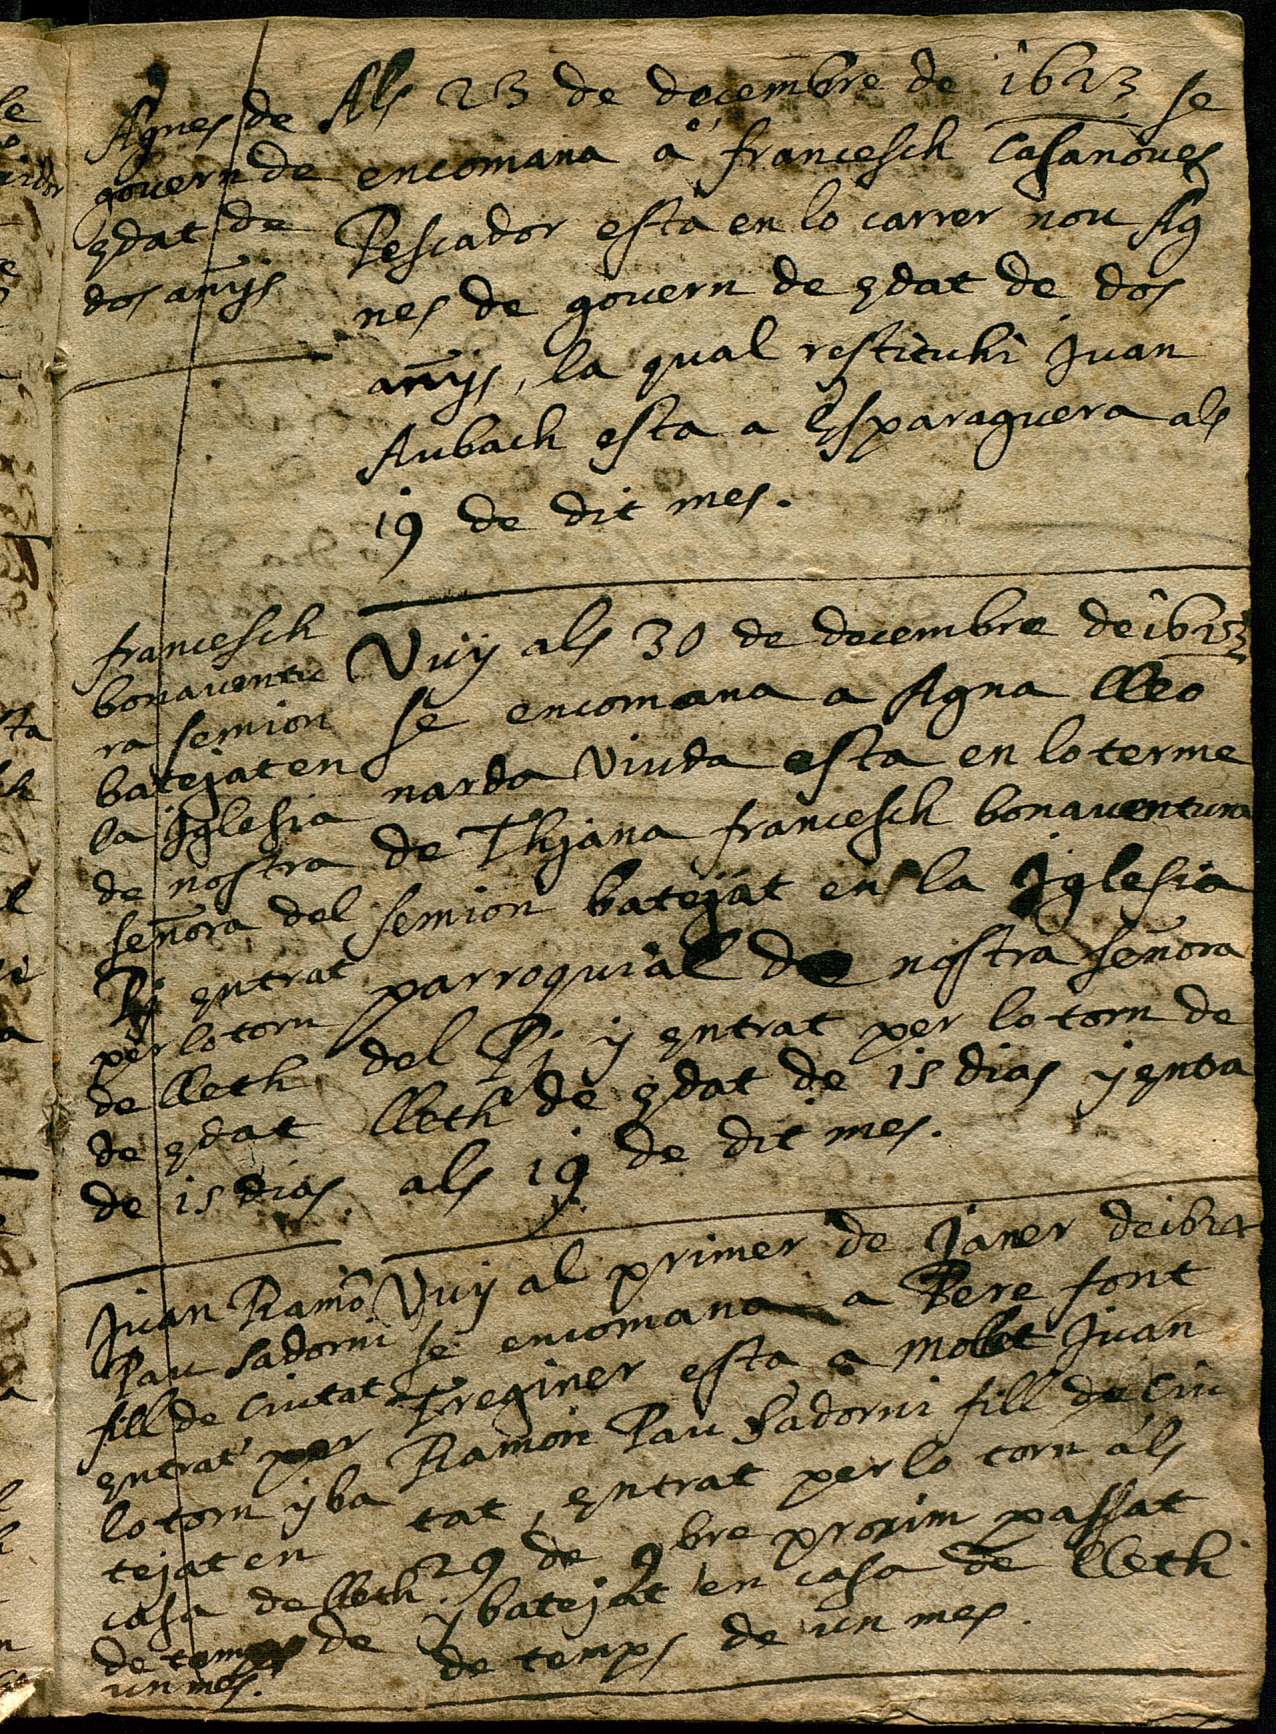 Agnes de
govern de
edat de
dos anÿs
Als 23 de decembre de 1623 se
encomana a francesch Casanoves
Pescador esta en lo carrer nou Ag
nes de govern de edat de dos
anÿs, la qual restituhi Juan
Aubach esta a Esparaguera als
19 de dit mes.
francesch
bonaventu
ra semion
batejat en
la Iglesia
de nostra
señora del
Pj entrat
per lo torn
de lleth
de edat
de 15 dias
Vuÿ als 30 de decembre de 1623
se encomana a Agna lleo
narda Viuda esta en lo terme
de Thjana francesch bonaventura
semion batejat en la Iglesia
parroquial de nostra señora
del Pj y entrat per lo torn de
lleth de edat de 15 dias y entra
als 19 de dit mes.
Juan Ramõ
Pau Sadorni
fill de Ciutat
entrat per
lo torn y ba
tejat en
casa de lleth
de temps de
un mes.
Vuÿ al primer de Janer de 1624
se encomana a Pere font
Treginer esta a Mollet Juan
Ramon Pau Sadorni fill de Ciu
tat, entrat per lo torn als
29 de 9bre proxim passat
y batejat en casa de lleth
de temps de un mes.